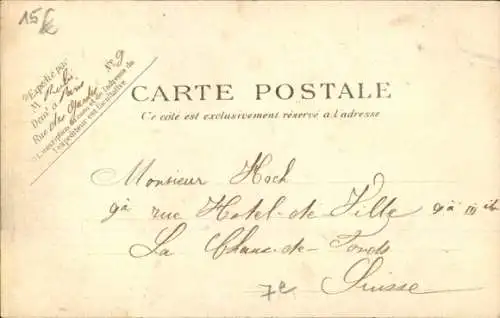 15
Expédié par
M.
Demt à Paris
Rue des N° 9
L'inscription du nom et de l'adresse de
l'expéditeur est facultative
CARTE POSTALE
Ce côté est exclusivement réservé à l'adresse
Monsieur Hoch
rue Hotel-de-Ville
La Chaux-de-Fonds
7e Suisse